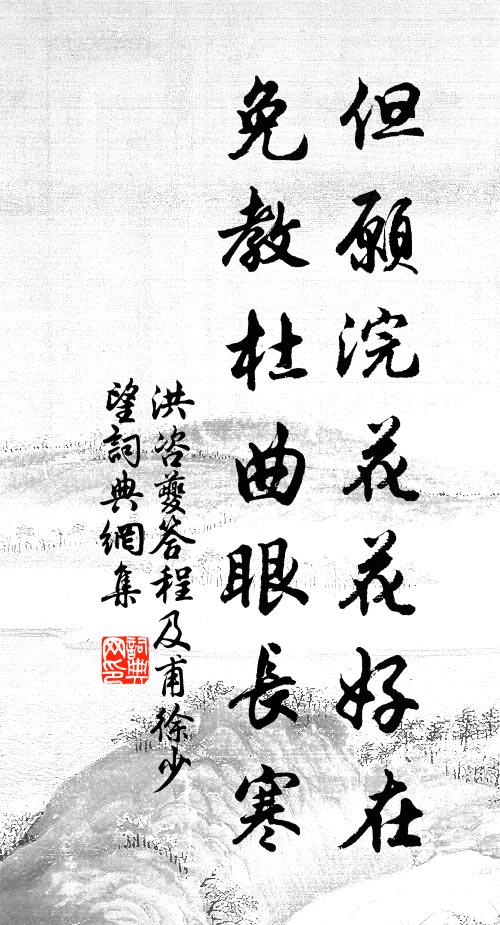 但願浣花花好在
免教杜曲眼長寒
洪咨夔答程及甫徐少
望詞典網集
詞典
网印